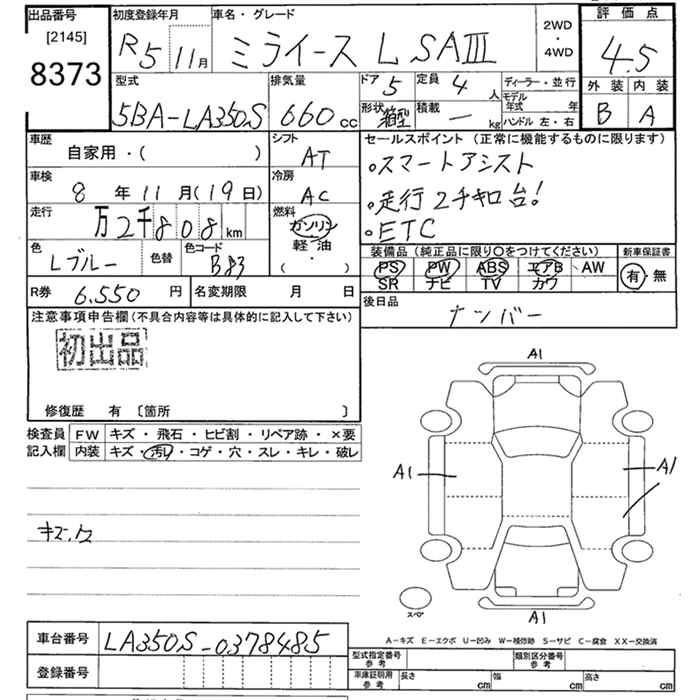 出品番号 初度登録年月 車名・グレード 2WD・4WD 評価点
[2145] R5 11月 ミライース L SAⅢ 4.5
8373 型式 排気量 ドア 5 定員 4人 ディーラー・並行 外装 内装
5BA-LA350S 660cc 形状 箱型 積載 ー kg モデル年式 年 B A
ハンドル 左・右
車歴 シフト セールスポイント (正常に機能するものに限ります)
自家用・( ) AT 。スマートアシスト
車検 8年11月(19日) 冷房 AC 。走行2千キロ台!
走行 万2千808km 燃料 ガソリン 。ETC
色 Lブルー 色替 色コード B83 軽油 ( ) 装備品 (純正品に限り○をつけてください) 新車保証書
PS PW ABS エアB AW 有・無
SR ナビ TV カワ
R券 6,550円 名変期限 月 日 後日品
ナンバー
注意事項申告欄(不具合内容等は具体的に記入して下さい)
初出品
修復歴 有 〔箇所 〕
検査員 FW キズ・飛石・ヒビ割・リペア跡・×要
記入欄 内装 キズ・汚レ・コゲ・穴・スレ・キレ・破レ
A1
A1
A1
A1
スペア
A-キズ E-エクボ U-凹み W-補修跡 S-サビ C-腐食 XX-交換済
車台番号 LA350S-0378485
型式指定番号 参考 類別区分番号 参考
登録番号 車庫証明用 参考 長さ cm 幅 cm 高さ cm